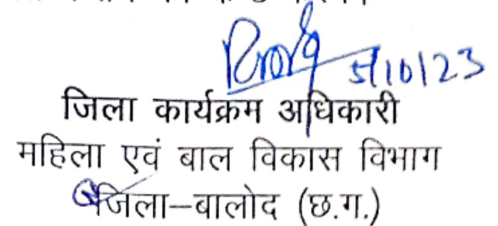 5/10/23
जिला कार्यक्रम अधिकारी
महिला एवं बाल विकास विभाग
जिला–बालोद (छ.ग.)